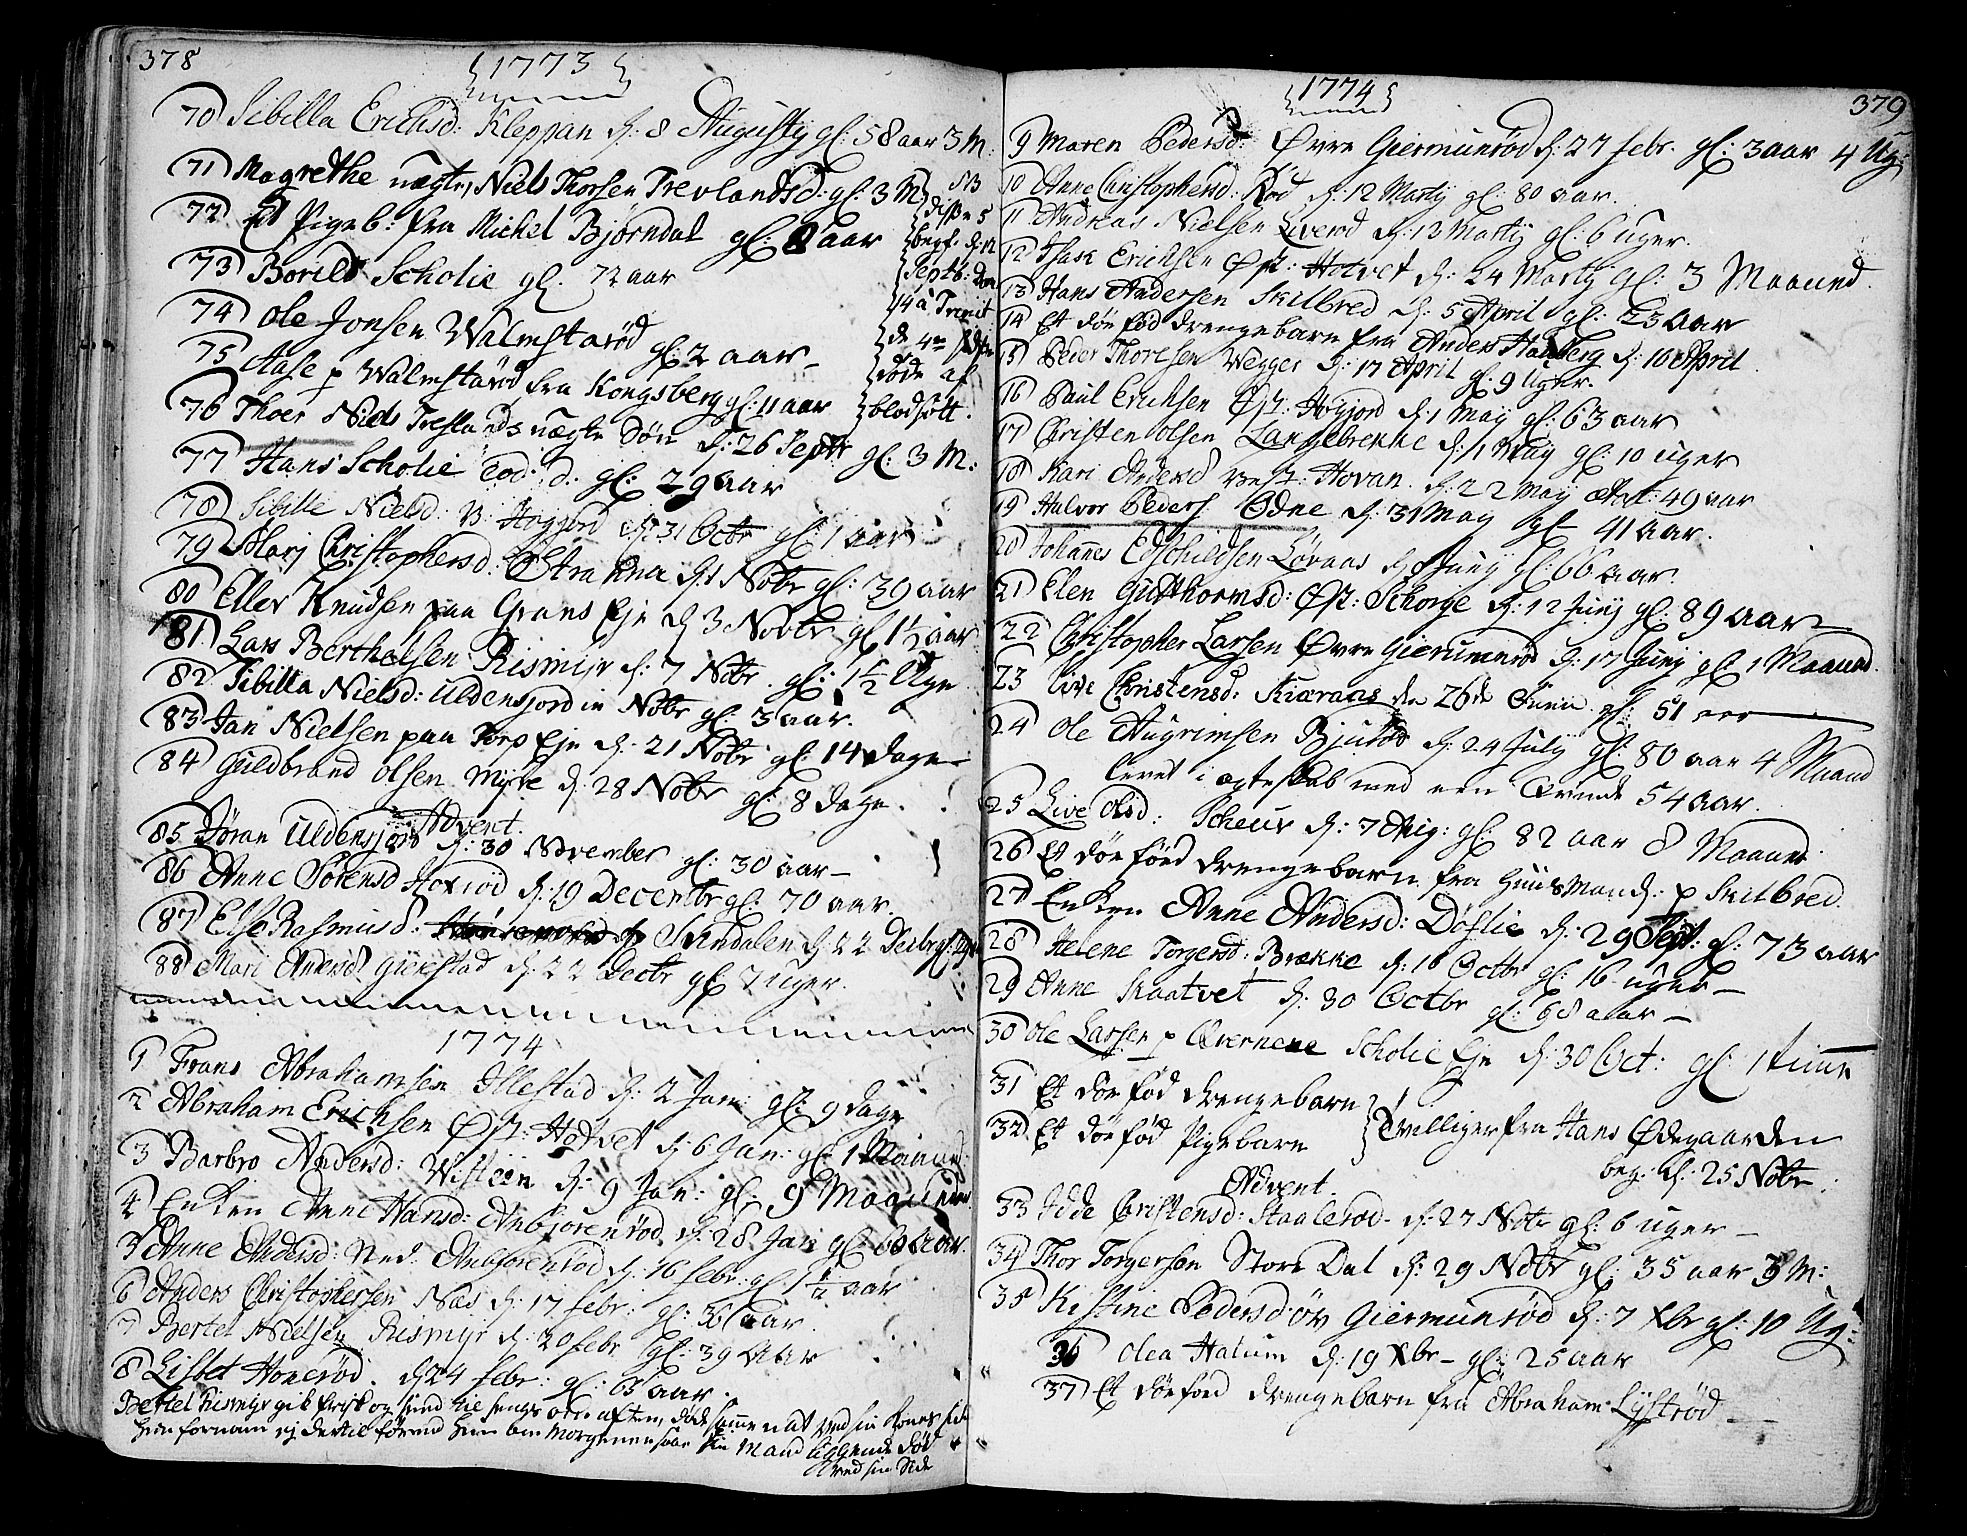 378
1773
70 Sibilla Erichsd: Kleppan d: 8 Augustij gl: 58 aar 3 M.
71 Magrethe uægte, Niels Thorsen Trevlandsd: gl: 3 M
72 Et Pigeb: fra Michel Bjørndal gl: 2 aar
73 Borild Scholie gl. 72 aar
74 Ole Jonsen Walmstarød gl: 2 aar
75 Aase p Walmstarød fra Kongsberg gl: 11 aar
disse 5
begr. d. 12
Septb: Dom
14 a Trinit
de 4
døde af
blodsott.
76 Thoer Niels Treflands uægte Søn d: 26 Septr gl: 3 M:
77 Hans Scholie eod: d. gl: 29 aar
78 Sibille Nielsd: Høgjord d: 31 Octbr gl: 1 aar
79 Marj Christophersd: Strakna d: 1 Nobr gl: 39 aar
80 Eller Knudsen paa Grans Eje d 3 Novbr gl 1 1/2 aar
81 Lars Berthelsen Rismyr d: 7 Nobr. gl: 1 1/2 Uge
82 Sibilla Nielsd: Uldensjordin Nobr gl: 3 aar.
83 Jan Nielsen paa Torp Eje d: 21 Nobr gl: 14 dage
84 Guldbrand Olsen Myre d: 28 Nobr gl: 8 dage.
Advent.
85 Jøran Uldensjord d: 30 November gl: 30 aar
86 Anne Sørensd Hoxrød d: 19 Decembr gl: 70 aar.
87 Else Rasmusd: p Svindalen d: 22 Decbr gl:
88 Mari Andersd Gierstad d: 22 Decbr gl 7 uger.
1774
1 Frans Abrahamsen Illestad d: 2 Jan: gl: 9 dage
2 Abraham Erichsen Øst: Hotvet d: 6 Jan: gl: 1 Maaned
3 Barbro Andersd: Wisteen d: 9 Jan: gl: 9 Maaneder
4 Enken Anne Hansd: Anbjorenrød d: 28 Jan gl 60 aar.
5 Anne Andersd: Ned: Anbjorenrød d: 16 febr: gl 1 1/2 aar
6 Anders Christophersen Næs d: 17 febr: gl: 36 aar.
7 Bertel Nielsen Rismyr d: 20 febr gl: 39 aar
8 Lisbet Honerød. d 24 febr: gl: 65 aar.
Bertel Rismyr gik frisk og sund til sengs om aften, døde samme nat ved sin Kones side
hun fornam ej dertil førend hun om Morgenen saae sin Mand liggende død
ved sin Side
379
1774
9 Maren Pedersd: Øvre Giermunrød d: 27 febr. gl: 3 aar 4 Ug:
10 Anne Christophersd: Rød d: 12 Martij gl: 80 aar.
11 Andreas Nielsen Liverød d: 13 Martij gl: 6 uger.
12 Isaak Erichsen Øst: Hotvet d: 24 Martij gl: 3 Maaned.
13 Hans Andersen Skilbred d: 5 April gl: 23 aar
14 Et dødfød drengebarn fra Anders Haaberg d: 10 April.
15 Peder Thoresen Wegger d: 17 April gl: 9 Uger.
16 Paul Erichsen Øst: Høgjord d: 1 May gl: 63 aar
17 Christen Olsen Langebrekke d: 1 May gl: 10 uger
18 Kari Andersd vest: Hovan d: 22 May Æat: 49 aar
19 Halvor Peders: Ødne d: 31 May gl 41 aar.
20 Johannes Edschildsen Løvaas d Junij gl: 66 aar.
21 Elen Gutthormsd: Øst: Schorge d: 12 Junij gl: 89 aar
22 Christopher Larsen Øvre Gierumrød d: 17 Junij gl: 1 Maaned.
23 Live Christensd: Kiæraas den 26de Junii gl: 51 aar
24 Ole Augrimsen Bjurød d: 24 July gl: 80 aar 4 Maaned
levet i ægteskab med een Qvinde 54 aar.
25 Live Olsd: Scheur d: 7 Aug: gl: 82 aar 8 Maaned.
26 Et dødføed drengebarn fra Huusmand: p Skilbred.
27 Enken Anne Andersd: Døflie d: 29 Sept: gl: 73 aar
28 Helene Torgersd: Brække d: 16 Octbr gl: 16 uger
29 Anne Skaatvet d: 30 Octbr gl: 68 aar
30 Ole Larsen p Qvernene Scholie Eje d: 30 Oct: gl: 1 time
31 Et dødfød drengebarn
32 Et dødfød Pigebarn
Tvillinger fra Hans Ødegaarden
beg: d: 25 Nobr.
Advent.
33 Idde Christensd: Staalerød d: 27 Nobr gl: 6 uger
34 Thor Torgersen Store Dal d: 29 Nobr gl: 35 aar 3 M:
35 Kistine Pedersd Øv Giermunrød d: 7 Xbr gl: 10 Ug:
36 Olea Hatum d: 19 Xbr gl: 25 aar
37 Et dødføed drengebarn fra Abraham Lystrød